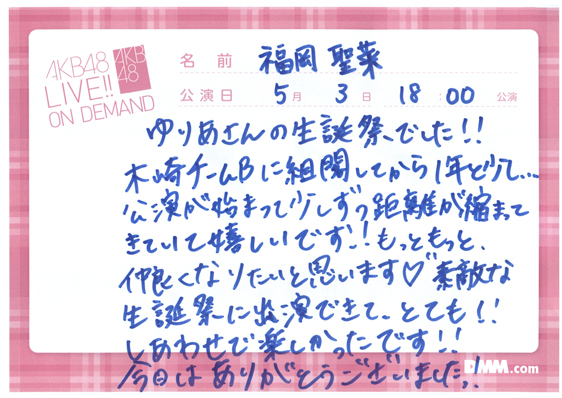 AKB48
LIVE!!
ON DEMAND
AKB
48
名前 福岡 聖菜
公演日 5月 3日 18:00 公演
ゆりあさんの生誕祭でした!!
木﨑チームBに組閣してから1年と少し…
公演が始まって少しずつ距離が縮まって
きていて嬉しいです!!もっともっと、
仲良くなりたいと思います♡素敵な
生誕祭に出演できて、とても!!
しあわせで楽しかったです!!
今日はありがとうございましたっ!
DMM.com